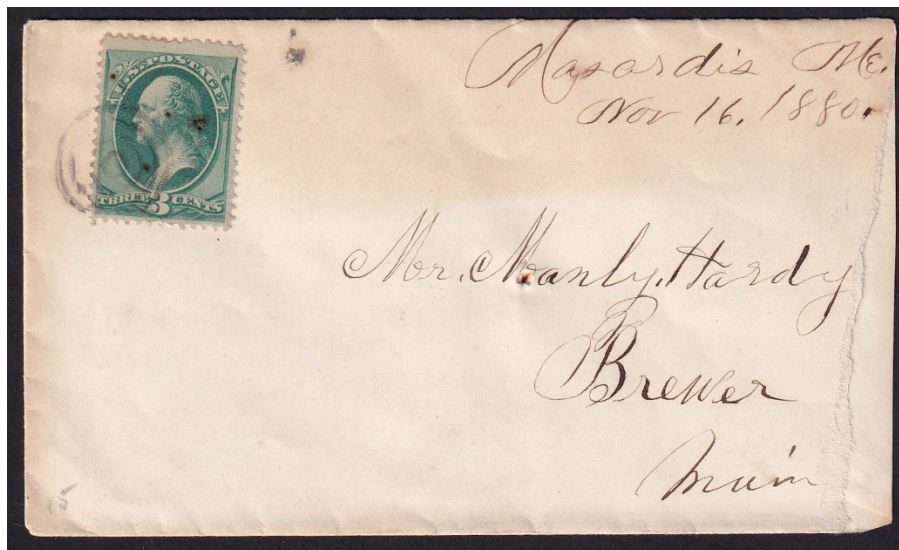 U.S. POSTAGE
THREE 3 CENTS
Masardis Me.
Nov 16. 1880.
Mr. Manly Hardy
Brewer
Main
15